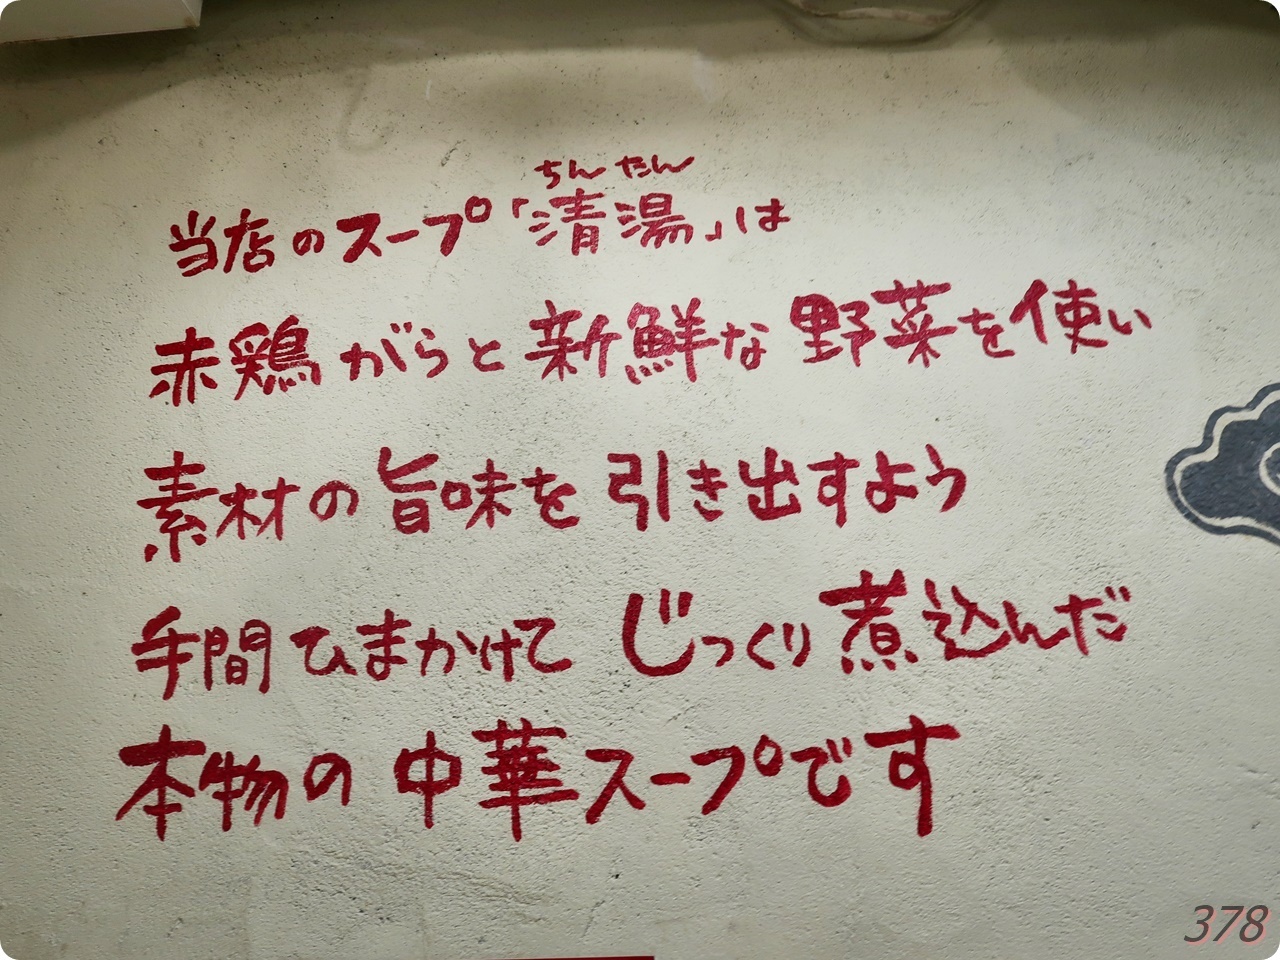 ちんたん
当店のスープ「清湯」は
赤鶏がらと新鮮な野菜を使い
素材の旨味を引き出すよう
手間ひまかけて じっくり煮込んだ
本物の中華スープです
378